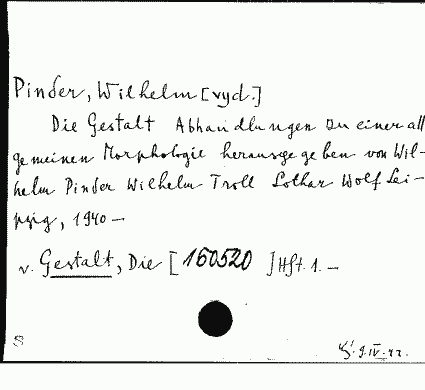 Pinder, Wilhelm [vyd.]
Die Gestalt Abhandlungen zu einer all
gemeinen Morphologie herausgegeben von Wil-
helm Pinder Wilhelm Troll Lothar Wolf Lei-
pzig, 1940 —
v. Gestalt, Die [160520] Hft. 1. —
S
9.IV.42.